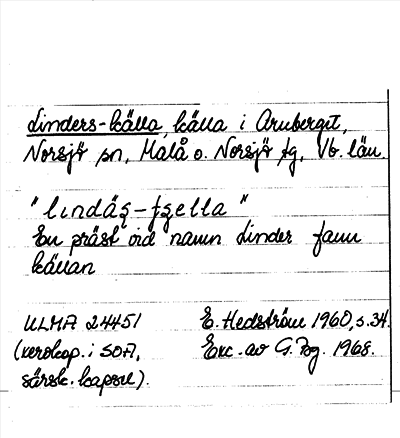 Linders-källa, källa i Aruberget,
Norsjö sn, Malå o. Norsjö tg, Vb. län.
"lındåş-fzella"
En präst vid namn Linder fann
källan
ULMA 24451 E. Hedström 1960, s. 34.
(xerokop. i SOA, Exc. av G. Pg. 1968.
särsk. kapsel).